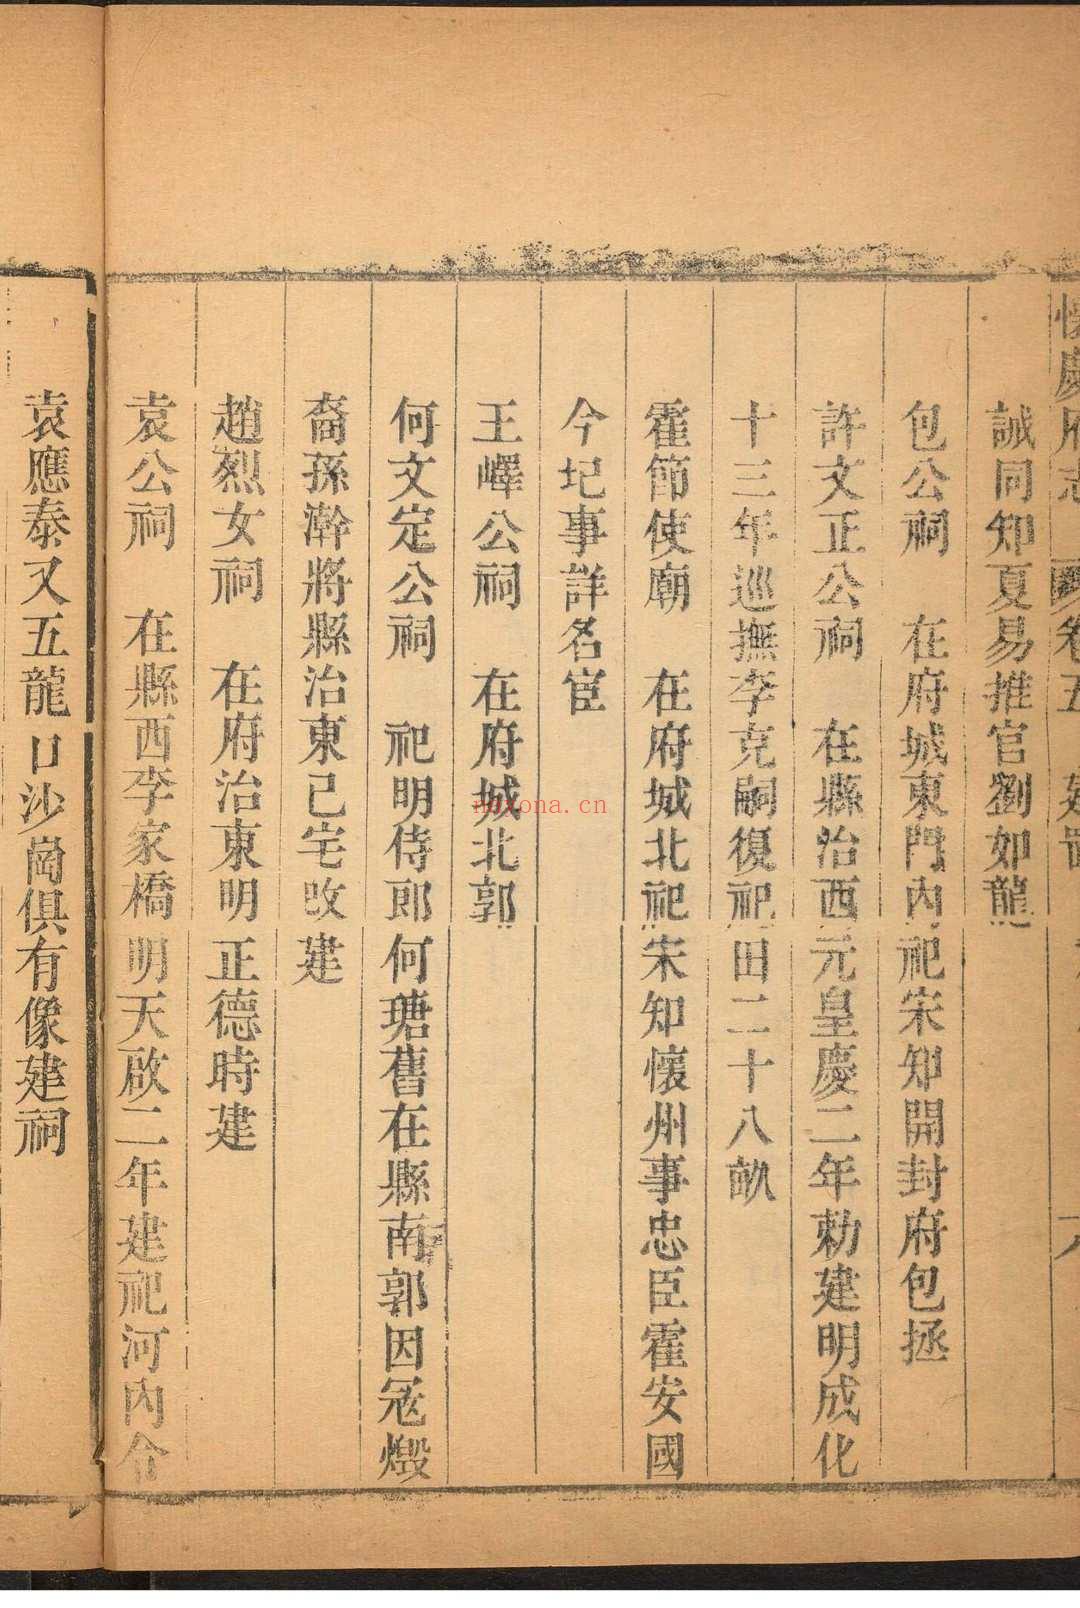 慶府志 卷五 建置
誠同知夏易推官劉如龍
包公祠 在府城東門內祀宋知開封府包拯
許文正公祠 在縣治西元皇慶二年勅建明成化
十三年巡撫李克嗣復祀田二十八畝
霍節使廟 在府城北祀宋知懷州事忠臣霍安國
今圮事詳名宦
王嶧公祠 在府城北郭
何文定公祠 祀明侍郎何瑭舊在縣南郭因冦燬
裔孫瀚將縣治東己宅改建
趙烈女祠 在府治東明正德時建
袁公祠 在縣西李家橋明天啟二年建祀河內令
袁應泰又五龍口沙崗俱有像建祠
nexona.cn